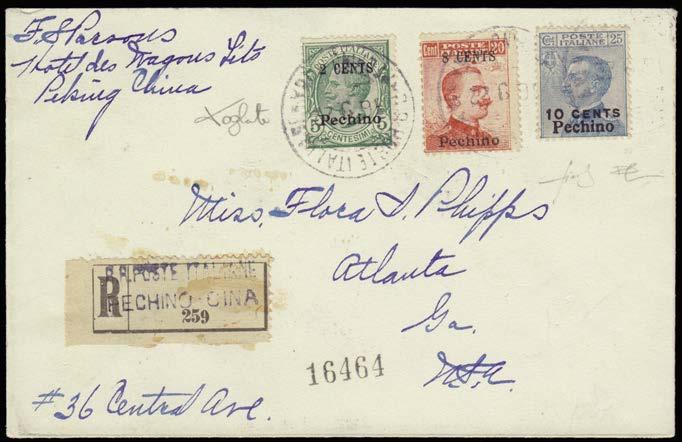 F. S Parsons
Hotel des Wagons Lits
Peking China
POSTE ITALIANE
2 CENTS
Pechino
5 5
CENTESIMI
Cent POSTE 20
8 CENTS
Pechino
Cent POSTE ITALIANE 25
10 CENTS
Pechino
Miss. Flora I. Phipps
Atlanta
Ga.
U.S.A.
R
R.R. POSTE ITALIANE
PECHINO-CINA
259
16464
#36 Central Ave.